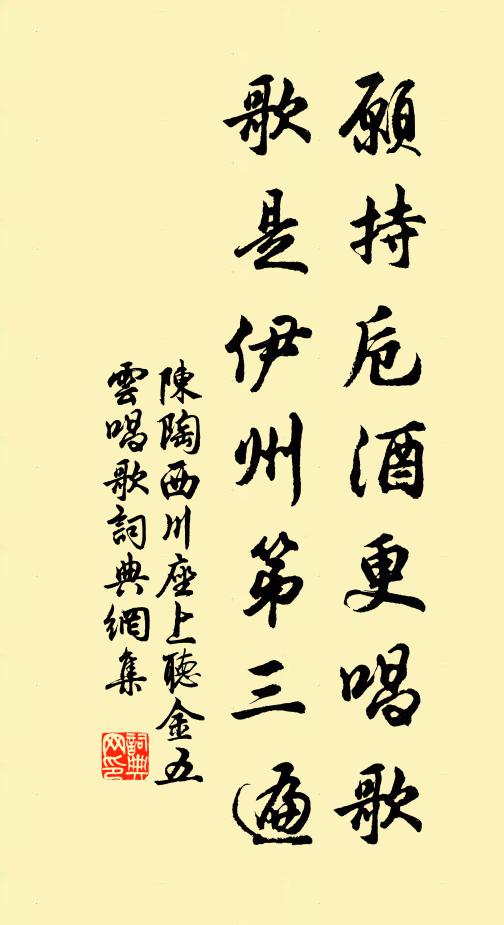 願持卮酒更唱歌
歌是伊州第三遍
陳陶西川座上聽金五
雲唱歌詞典網集
詞典
网印